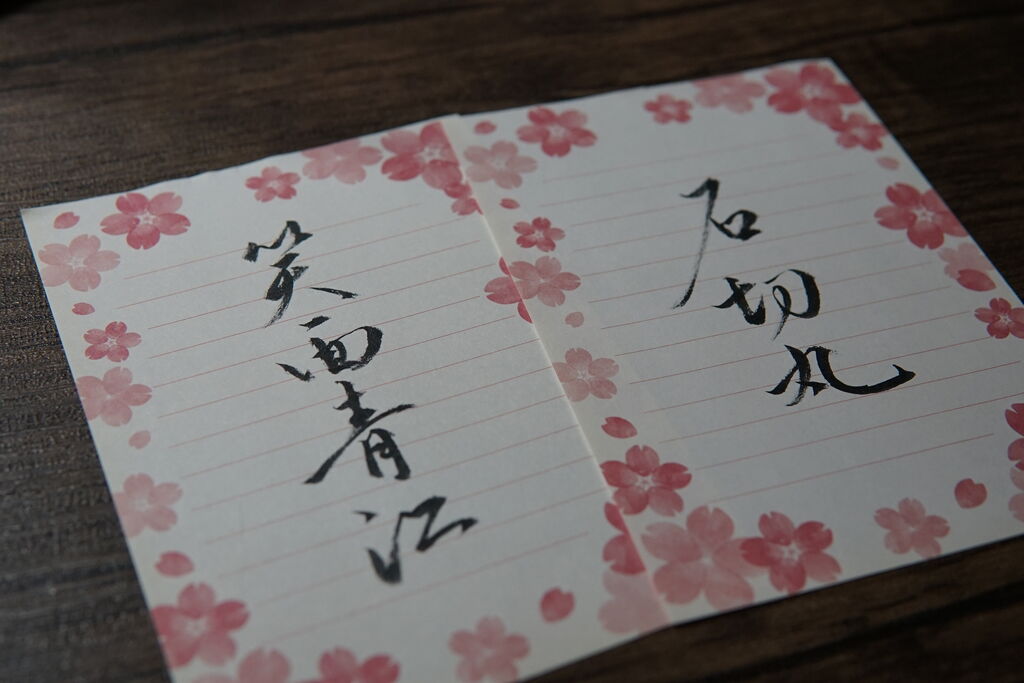 石切丸
笑面青江